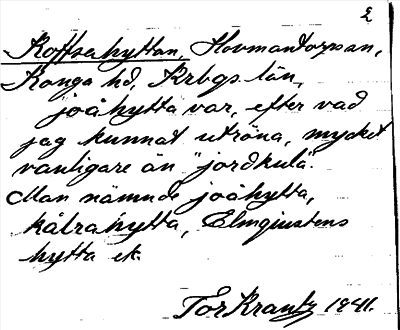 2
Koffsahyttan, Hovmantorps sn,
Konga hd, Krbgs län,
joåhytta var, efter vad
jag kunnat utröna, mycket
vanligare än "jordkula".
Man nämnde joåhytta,
kålrahytta, Elmqiustens
hytta etc
Tor Krantz 1941.